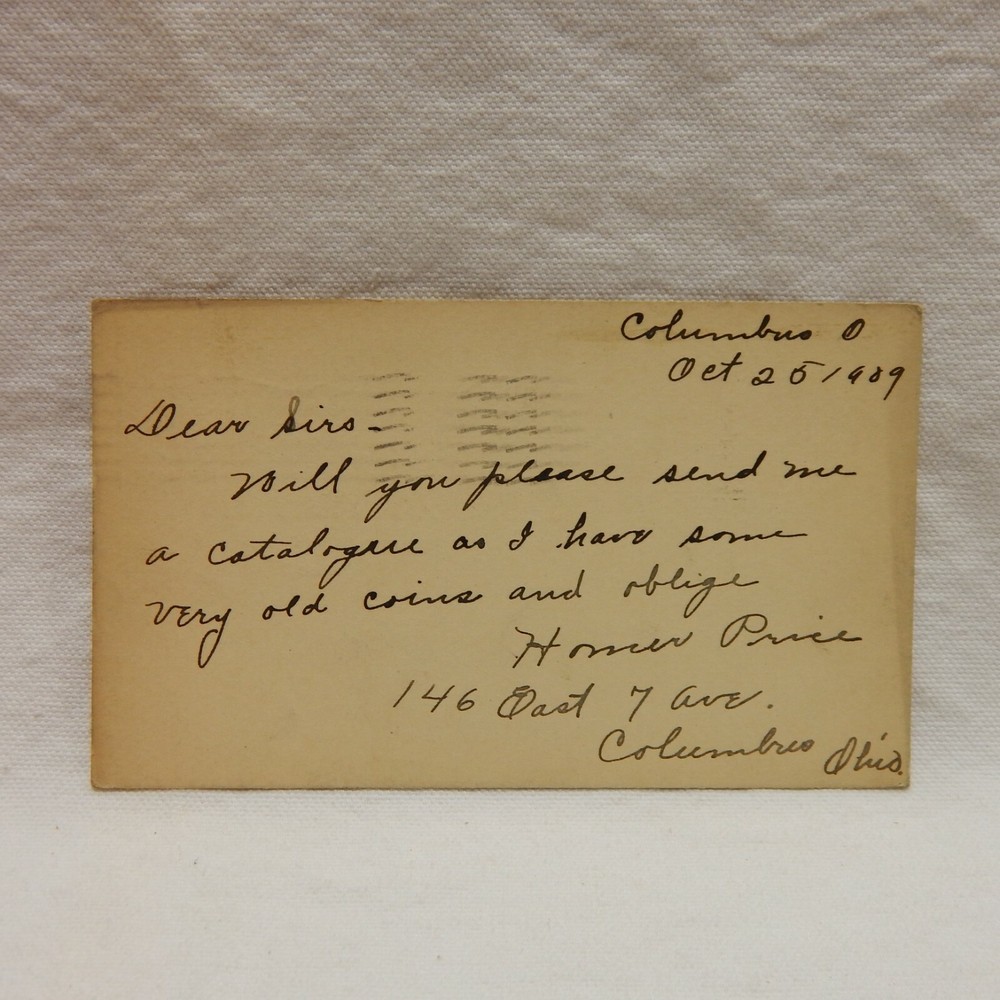 Columbus O
Oct 25 1909
Dear Sirs-
Will you please send me
a catalogue as I have some
very old coins and oblige
Homer Price
146 East 7 Ave.
Columbus Ohio.